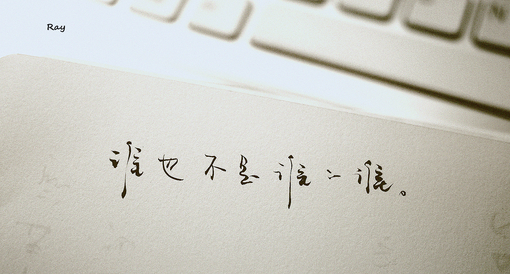 Ray
谁也不是谁的谁。